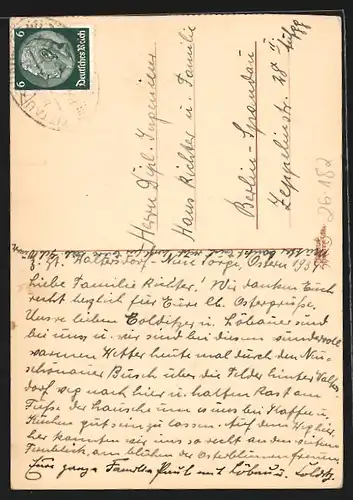 6 Deutsches Reich 6
Herrn Dipl. Ingenieur
Hans Richter u. Familie
Berlin-Spandau
Zeppelinstr.
26182
Z. Zt. Waltersdorf - Neue Sorge, Ostern 1934
Liebe Familie Richter! Wir danken Euch
recht herzlich für Eure lb. Ostergrüße.
Unsere lieben Colditzer u. Löbauer sind
bei uns u. wir sind bei diesem wundervoll
warmen Wetter heute mal durch den Neu-
schönauer Busch über die Felder hinter Walters-
dorf weg nach hier u. halten Rast am
Fuße der Lausche um es uns bei Kaffee u.
Kuchen gut sein zu lassen. Auf dem Weg hier-
her konnten wir uns so recht an den
Fernblick, am blühen der Osterblumen freuen.
Eure ganze Familie mit Löbau u. Colditz.